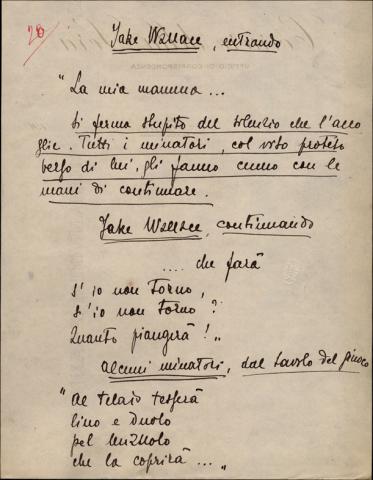 20
Jake Wallace, entrando
UFFICIO DI CORRISPONDENZA
"La mia mamma ...
Si ferma stupito del silenzio che l'acco
glie. Tutti i minatori, col viso proteso
verso di lui, gli fanno cenno con le
mani di continuare.
Jake Wallace, continuando
.... che farà
s'io non torno,
s'io non torno?
Quanto piangerà!"
Alcuni minatori, dal tavolo del giuoco
"Al telaio tesserà
lino e duolo
pel lenzuolo
che la coprirà ..."